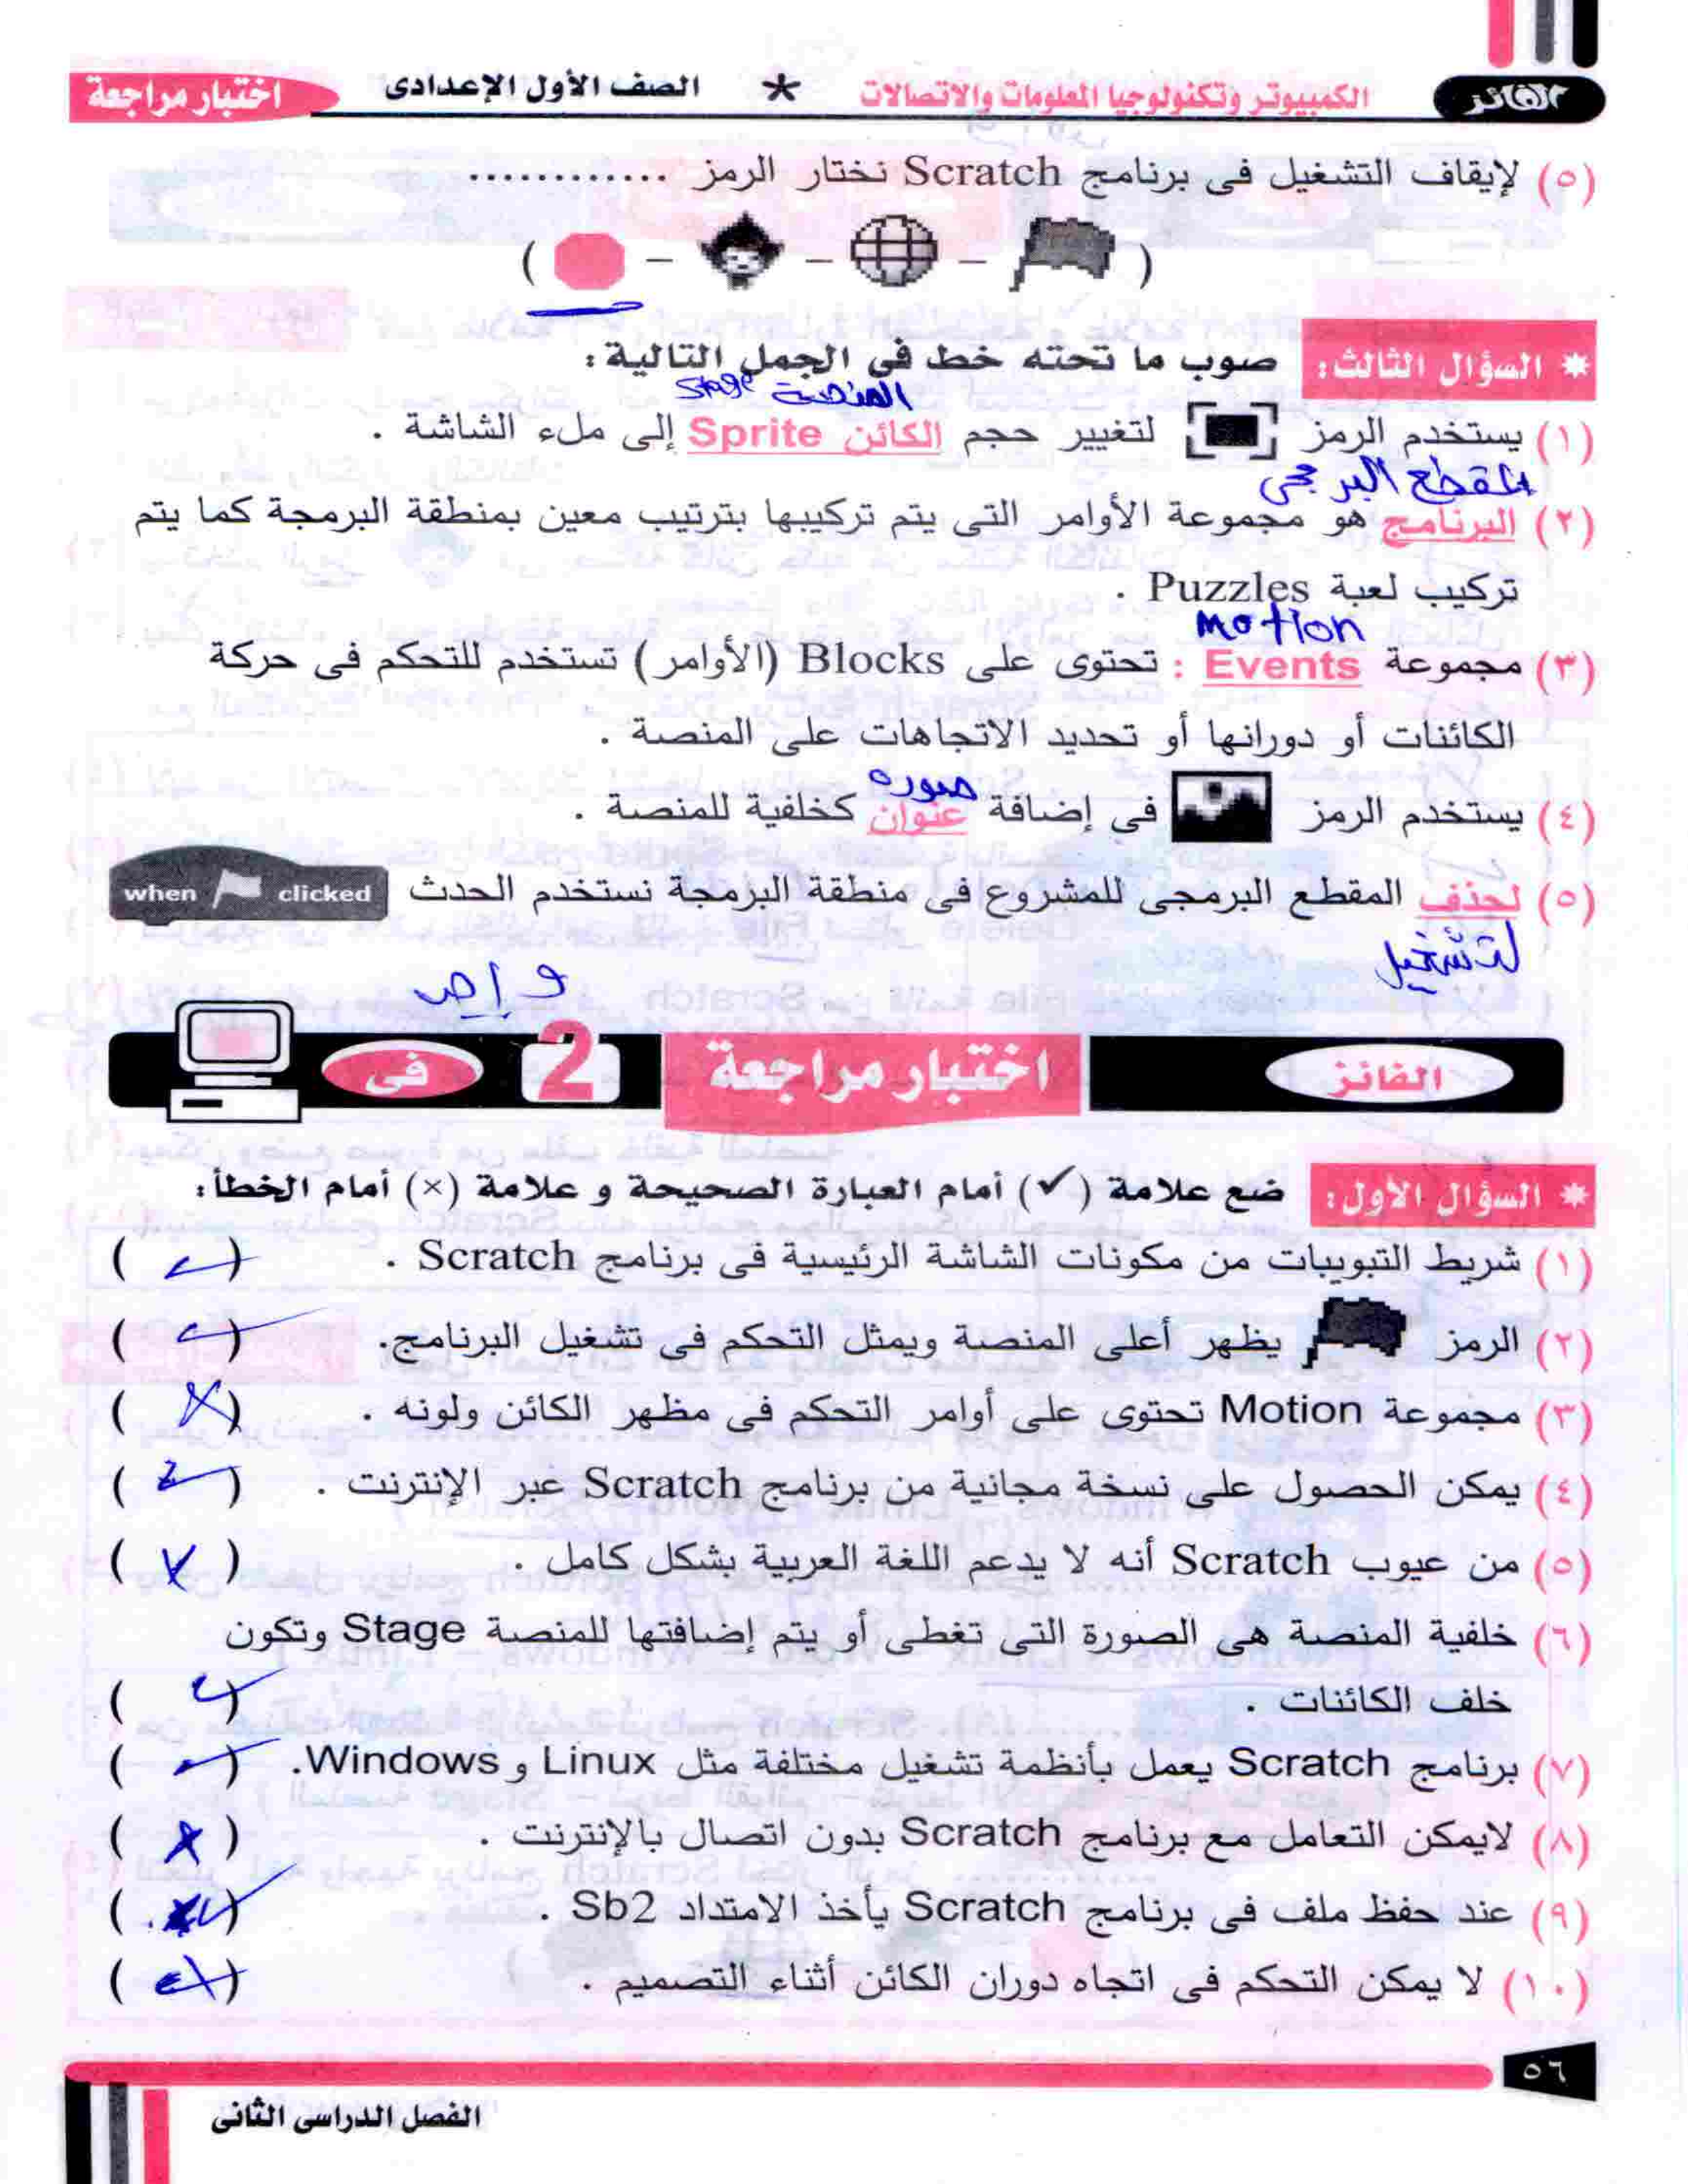 الفائز
الكمبيوتر وتكنولوجيا المعلومات والاتصالات * الصف الأول الإعدادى
اختبار مراجعة
(٥) لإيقاف التشغيل فى برنامج Scratch نختار الرمز ............
( - - - )
* السؤال الثالث: صوب ما تحته خط فى الجمل التالية:
المنصة Stage
(١) يستخدم الرمز لتغيير حجم الكائن Sprite إلى ملء الشاشة .
المقطع البرمجى
(٢) البرنامج هو مجموعة الأوامر التى يتم تركيبها بترتيب معين بمنطقة البرمجة كما يتم
تركيب لعبة Puzzles .
Motion
(٣) مجموعة Events : تحتوى على Blocks (الأوامر) تستخدم للتحكم فى حركة
الكائنات أو دورانها أو تحديد الاتجاهات على المنصة .
صوره
(٤) يستخدم الرمز فى إضافة عنوان كخلفية للمنصة .
(٥) لحذف المقطع البرمجى للمشروع فى منطقة البرمجة نستخدم الحدث when clicked
لتشغيل
الفائز اختبار مراجعة 2 فى
* السؤال الأول: ضع علامة (✓) أمام العبارة الصحيحة و علامة (×) أمام الخطأ:
(١) شريط التبويبات من مكونات الشاشة الرئيسية فى برنامج Scratch . (✓)
(٢) الرمز يظهر أعلى المنصة ويمثل التحكم فى تشغيل البرنامج. (✓)
(٣) مجموعة Motion تحتوى على أوامر التحكم فى مظهر الكائن ولونه . (×)
(٤) يمكن الحصول على نسخة مجانية من برنامج Scratch عبر الإنترنت . (✓)
(٥) من عيوب Scratch أنه لا يدعم اللغة العربية بشكل كامل . ( )
(٦) خلفية المنصة هى الصورة التى تغطى أو يتم إضافتها للمنصة Stage وتكون
خلف الكائنات . (✓)
(٧) برنامج Scratch يعمل بأنظمة تشغيل مختلفة مثل Linux و Windows. (✓)
(٨) لايمكن التعامل مع برنامج Scratch بدون اتصال بالإنترنت . (×)
(٩) عند حفظ ملف فى برنامج Scratch يأخذ الامتداد Sb2 . (✓)
(١٠) لا يمكن التحكم فى اتجاه دوران الكائن أثناء التصميم . ( )
٥٦
الفصل الدراسى الثانى